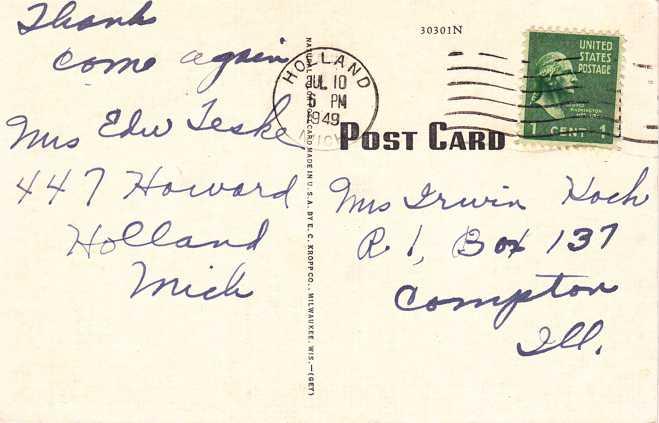 Thank
come again
Mrs Edw Teske
447 Howard
Holland
Mich
30301N
HOLLAND
JUL 10
5 PM
1949
MICH.
UNITED
STATES
POSTAGE
WASHINGTON
1 CENT 1
POST CARD
Mrs Irwin Koch
R 1, Box 137
Compton
Ill.
MADE IN U.S.A. BY E. C. KROPP CO., MILWAUKEE, WIS.—(GET)